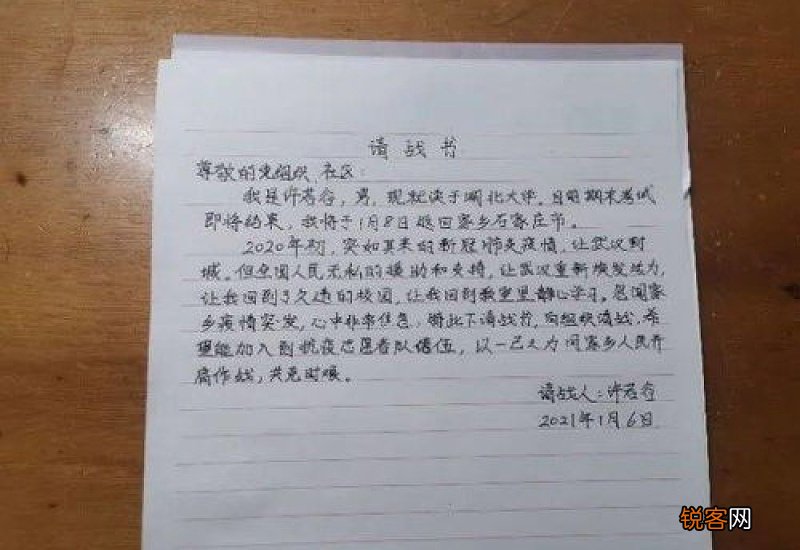 请战书
尊敬的党组织、社区：
我是许若谷，男，现就读于湖北大学。目前期末考试
即将结束，我将于1月8日返回家乡石家庄市。
2020年初，突如其来的新冠肺炎疫情，让武汉封
城。但全国人民无私的援助和支持，让武汉重新焕发活力，
让我回到了久违的校园，让我回到教室里静心学习。忽闻家
乡疫情突发，心中非常焦急，特此下请战书，向组织请战，希
望能加入到抗疫志愿者队伍，以一己之力同家乡人民并
肩作战，共克时艰。
请战人：许若谷
2021年1月6日
锐客网